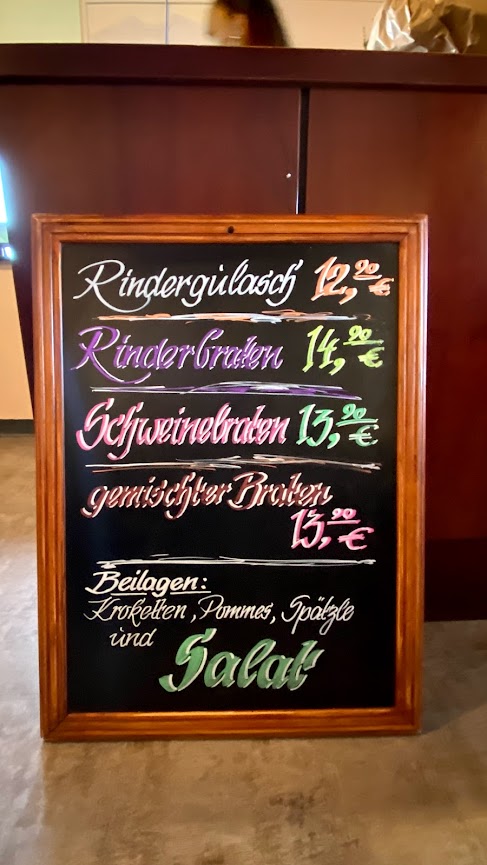 Rindergulasch 12,90 €
Rinderbraten 14,90 €
Schweinebraten 13,90 €
gemischter Braten
13,90 €
Beilagen:
Kroketten, Pommes, Spätzle
und
Salat